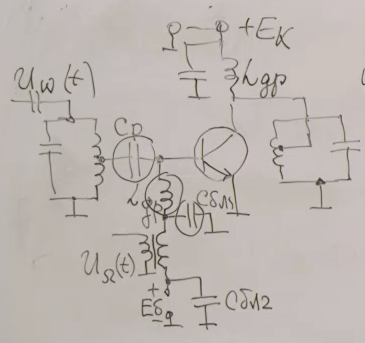 +Eк
Lдр
Uω(t)
Cр
Lдр
Cбл1
UΩ(t)
+
Eб
Cбл2